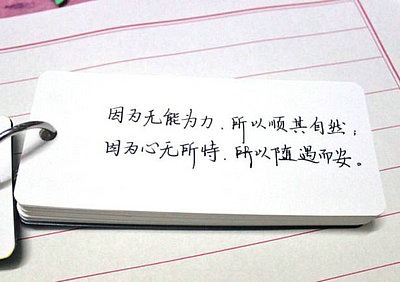 因为无能为力.所以顺其自然;
因为心无所恃.所以随遇而安。